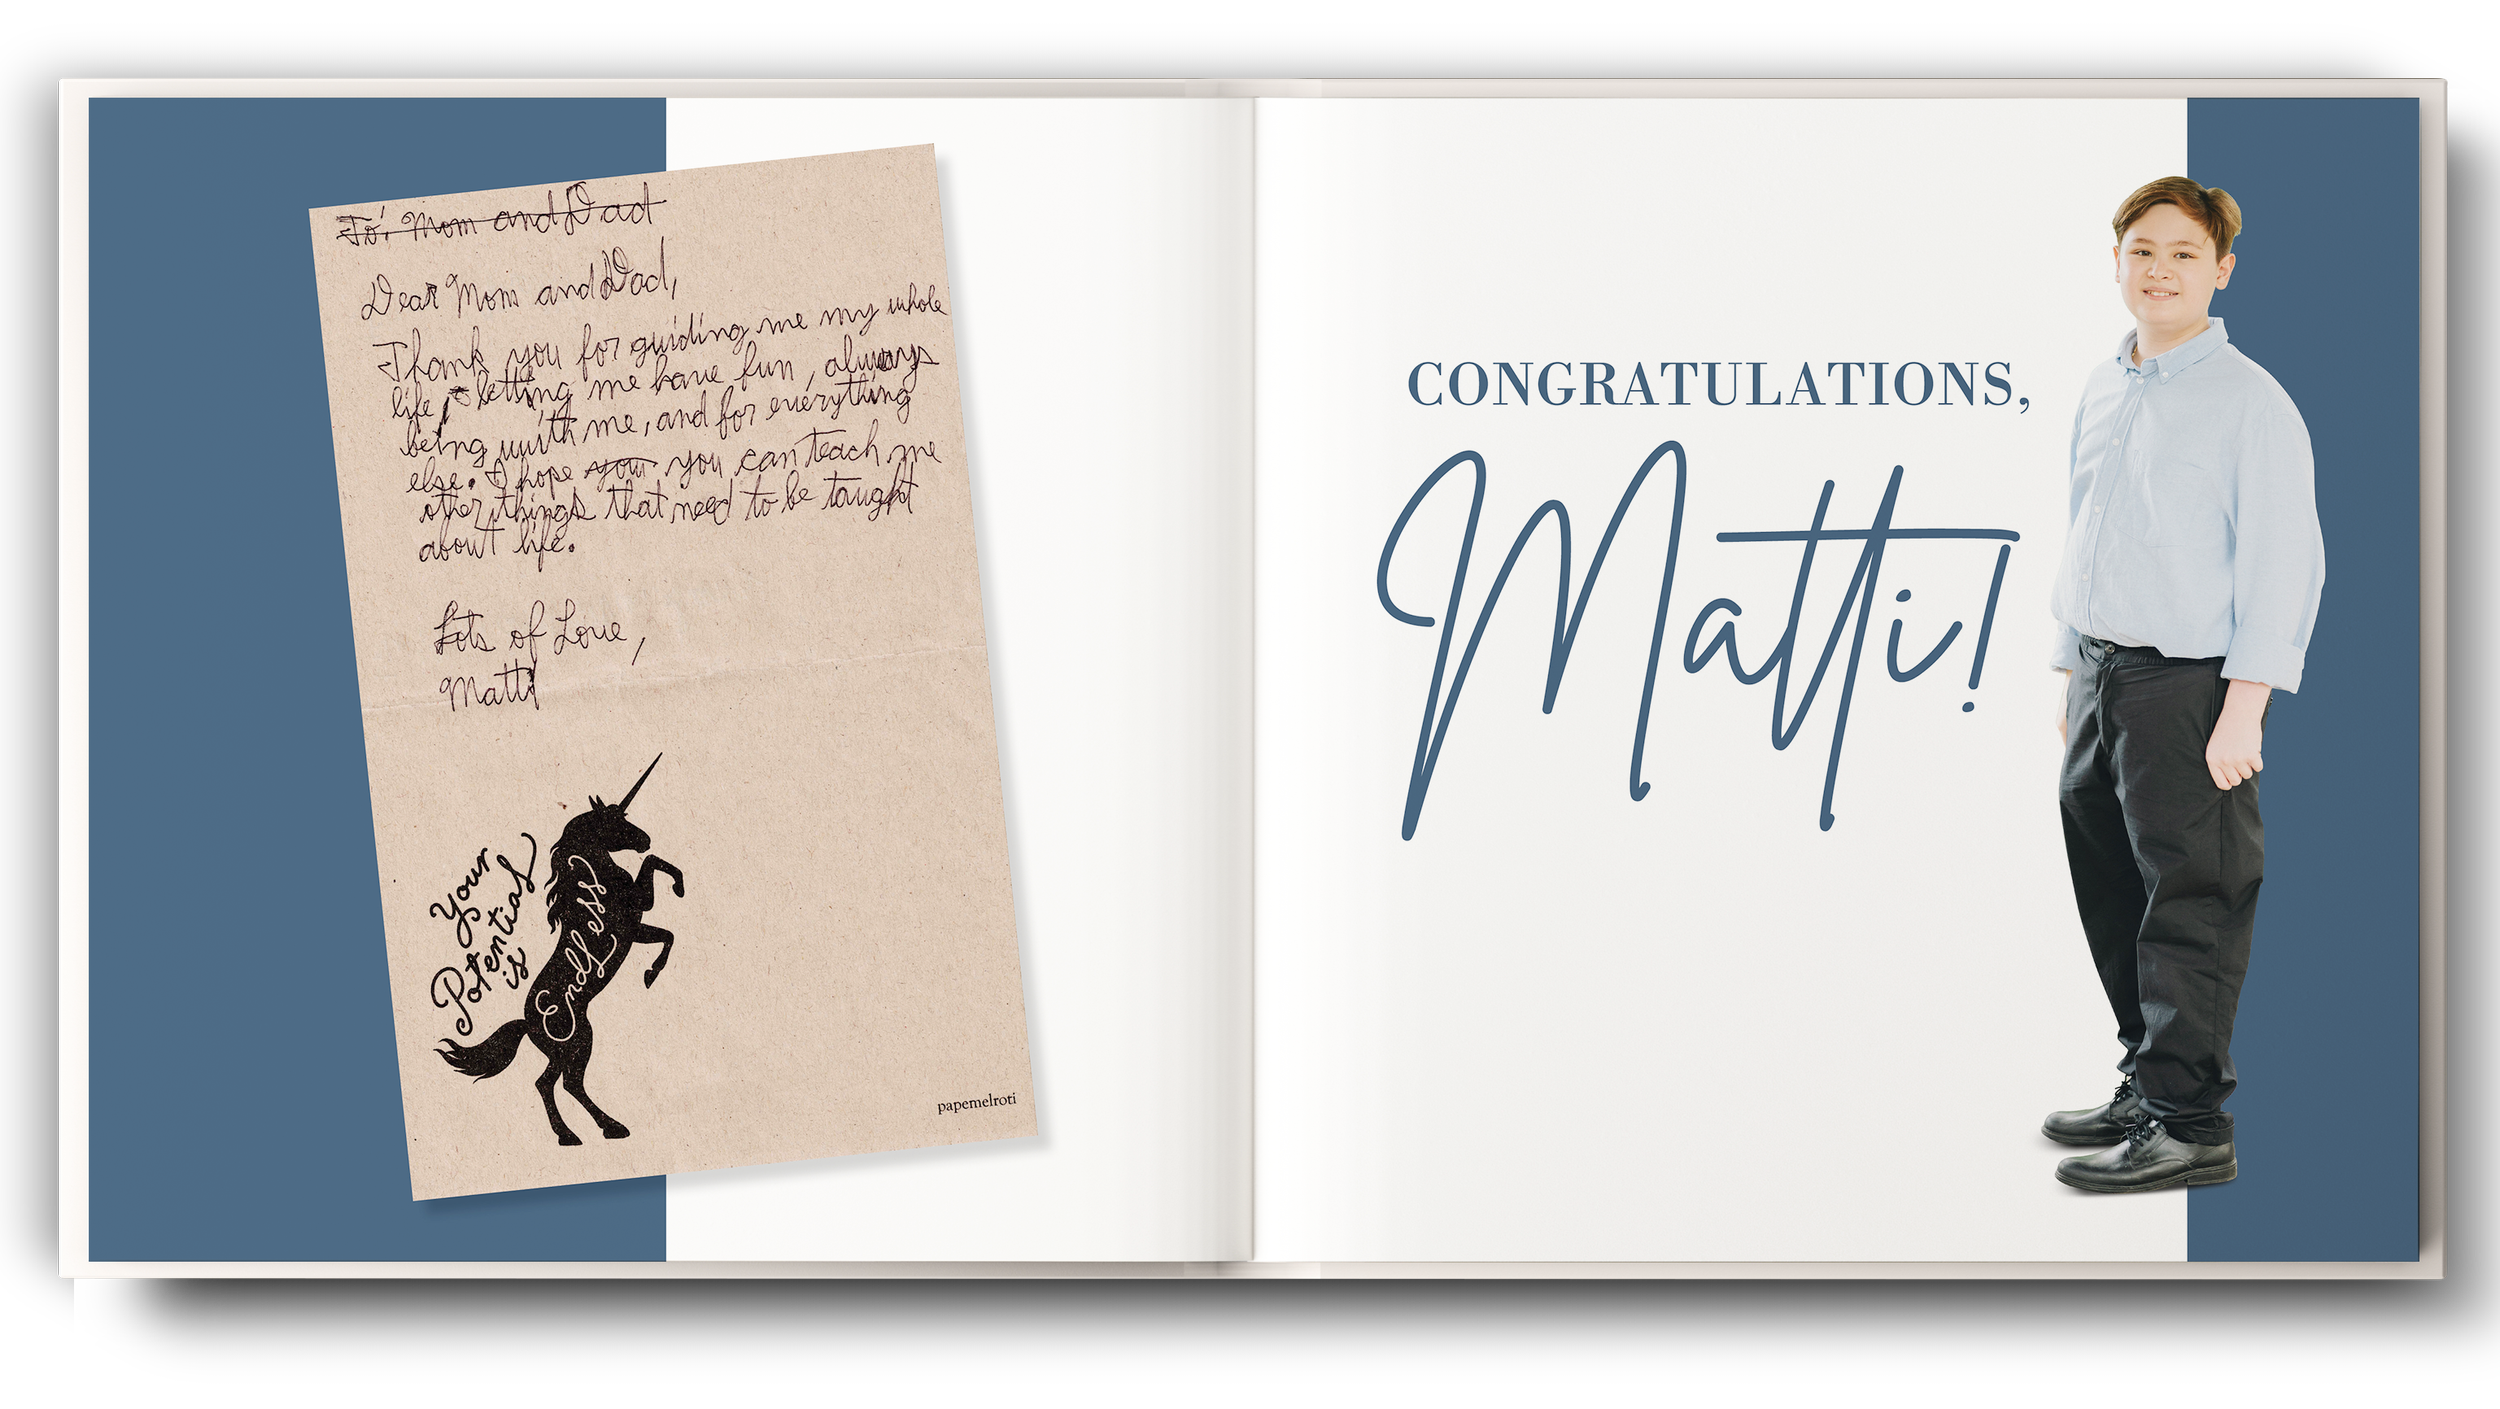 To: Mom and Dad
Dear Mom and Dad,
Thank you for guiding me my whole
life, letting me have fun, always
being with me, and for everything
else. I hope your you can teach me
other things that need to be taught
about life.
Lots of Love,
Matti
Your
Potential
is
Endless
papemelroti
CONGRATULATIONS,
Matti!